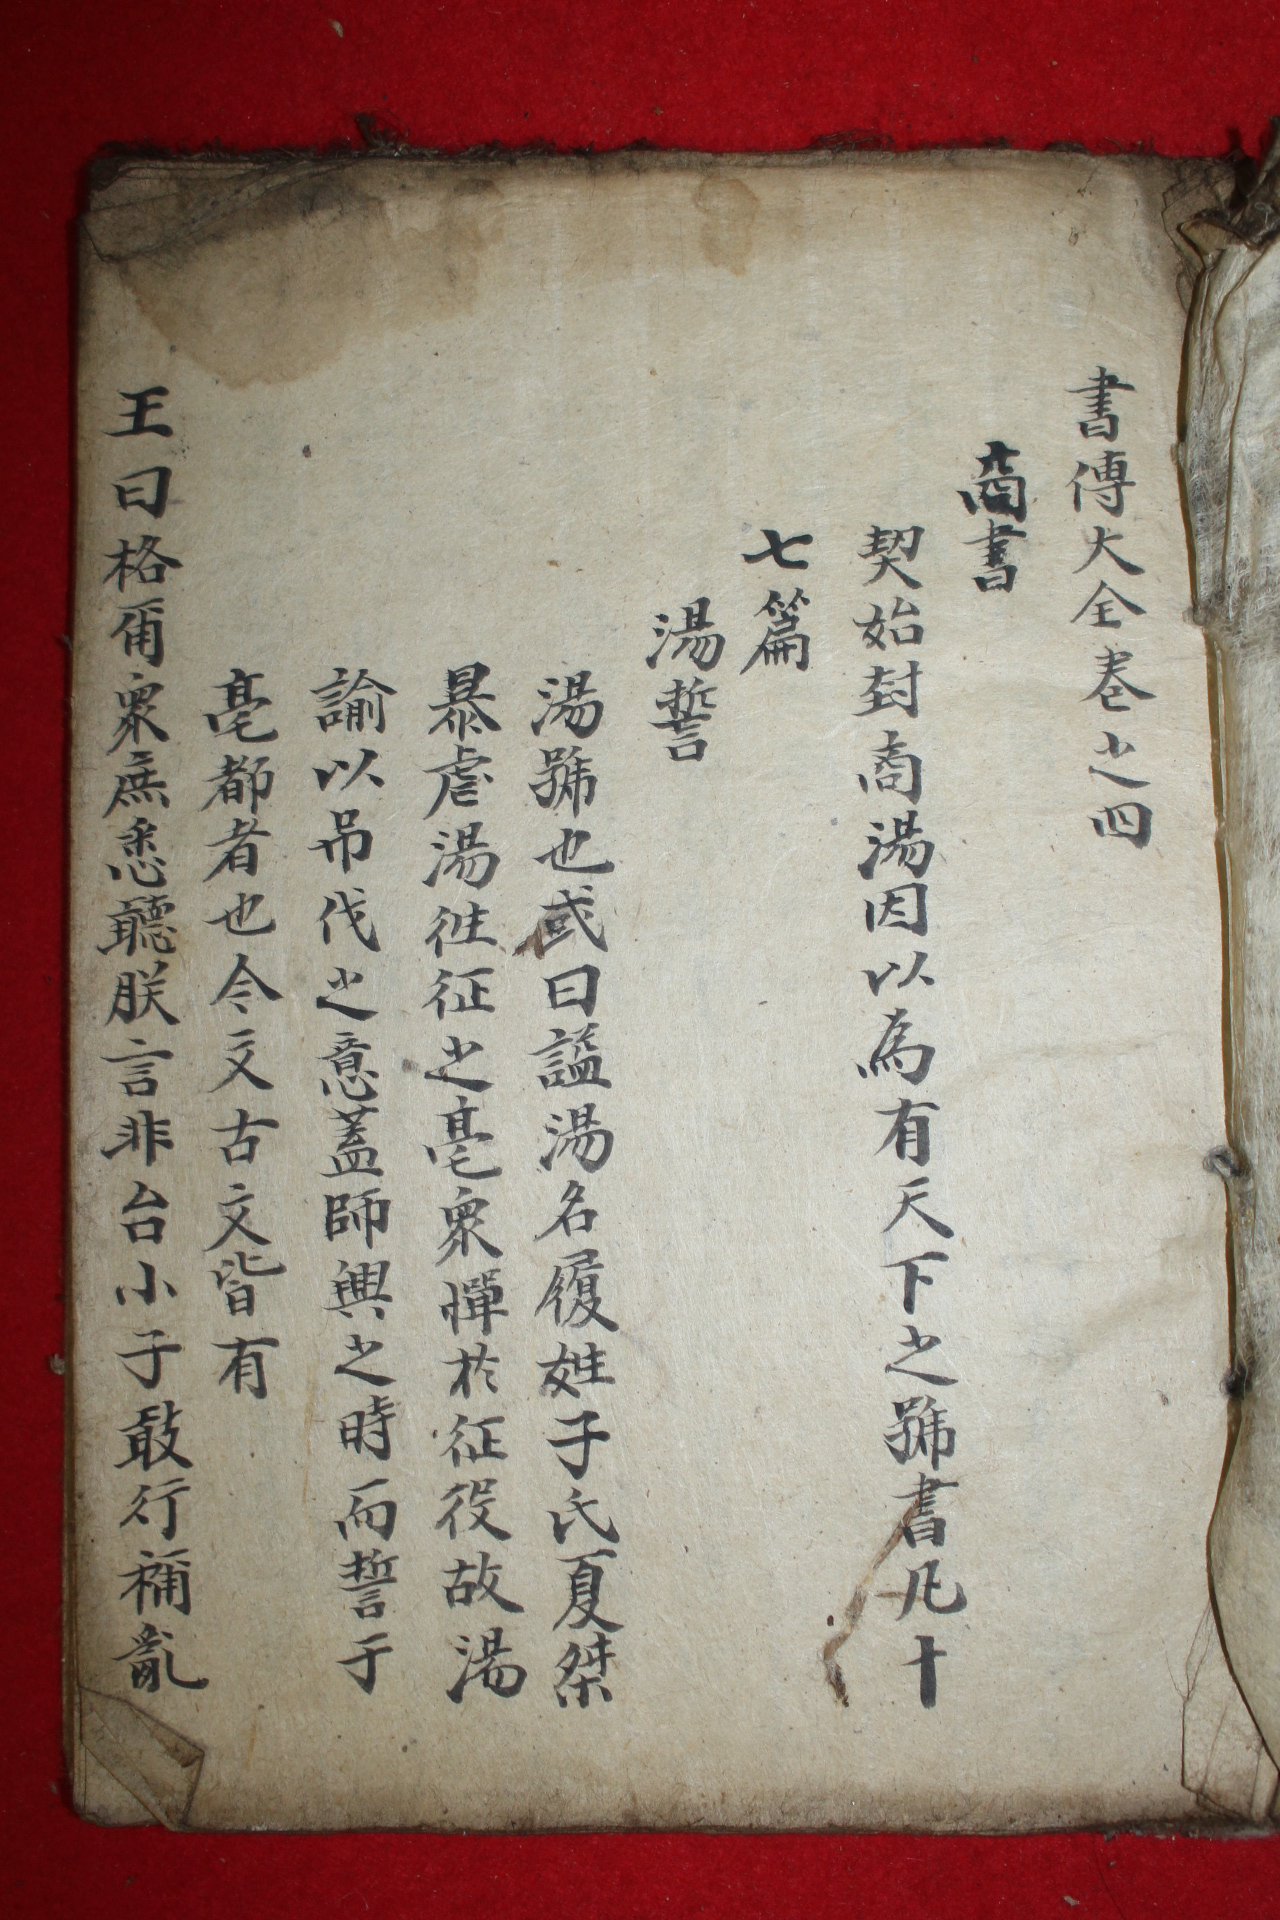 書傳大全卷之四
商書
契始封商湯因以為有天下之號書凡十
七篇
湯誓
湯號也或曰謚湯名履姓子氏夏桀
暴虐湯徃征之亳衆憚於征役故湯
諭以吊伐之意蓋師興之時而誓于
亳都者也今文古文皆有
王曰格爾衆庶悉聽朕言非台小子敢行稱亂